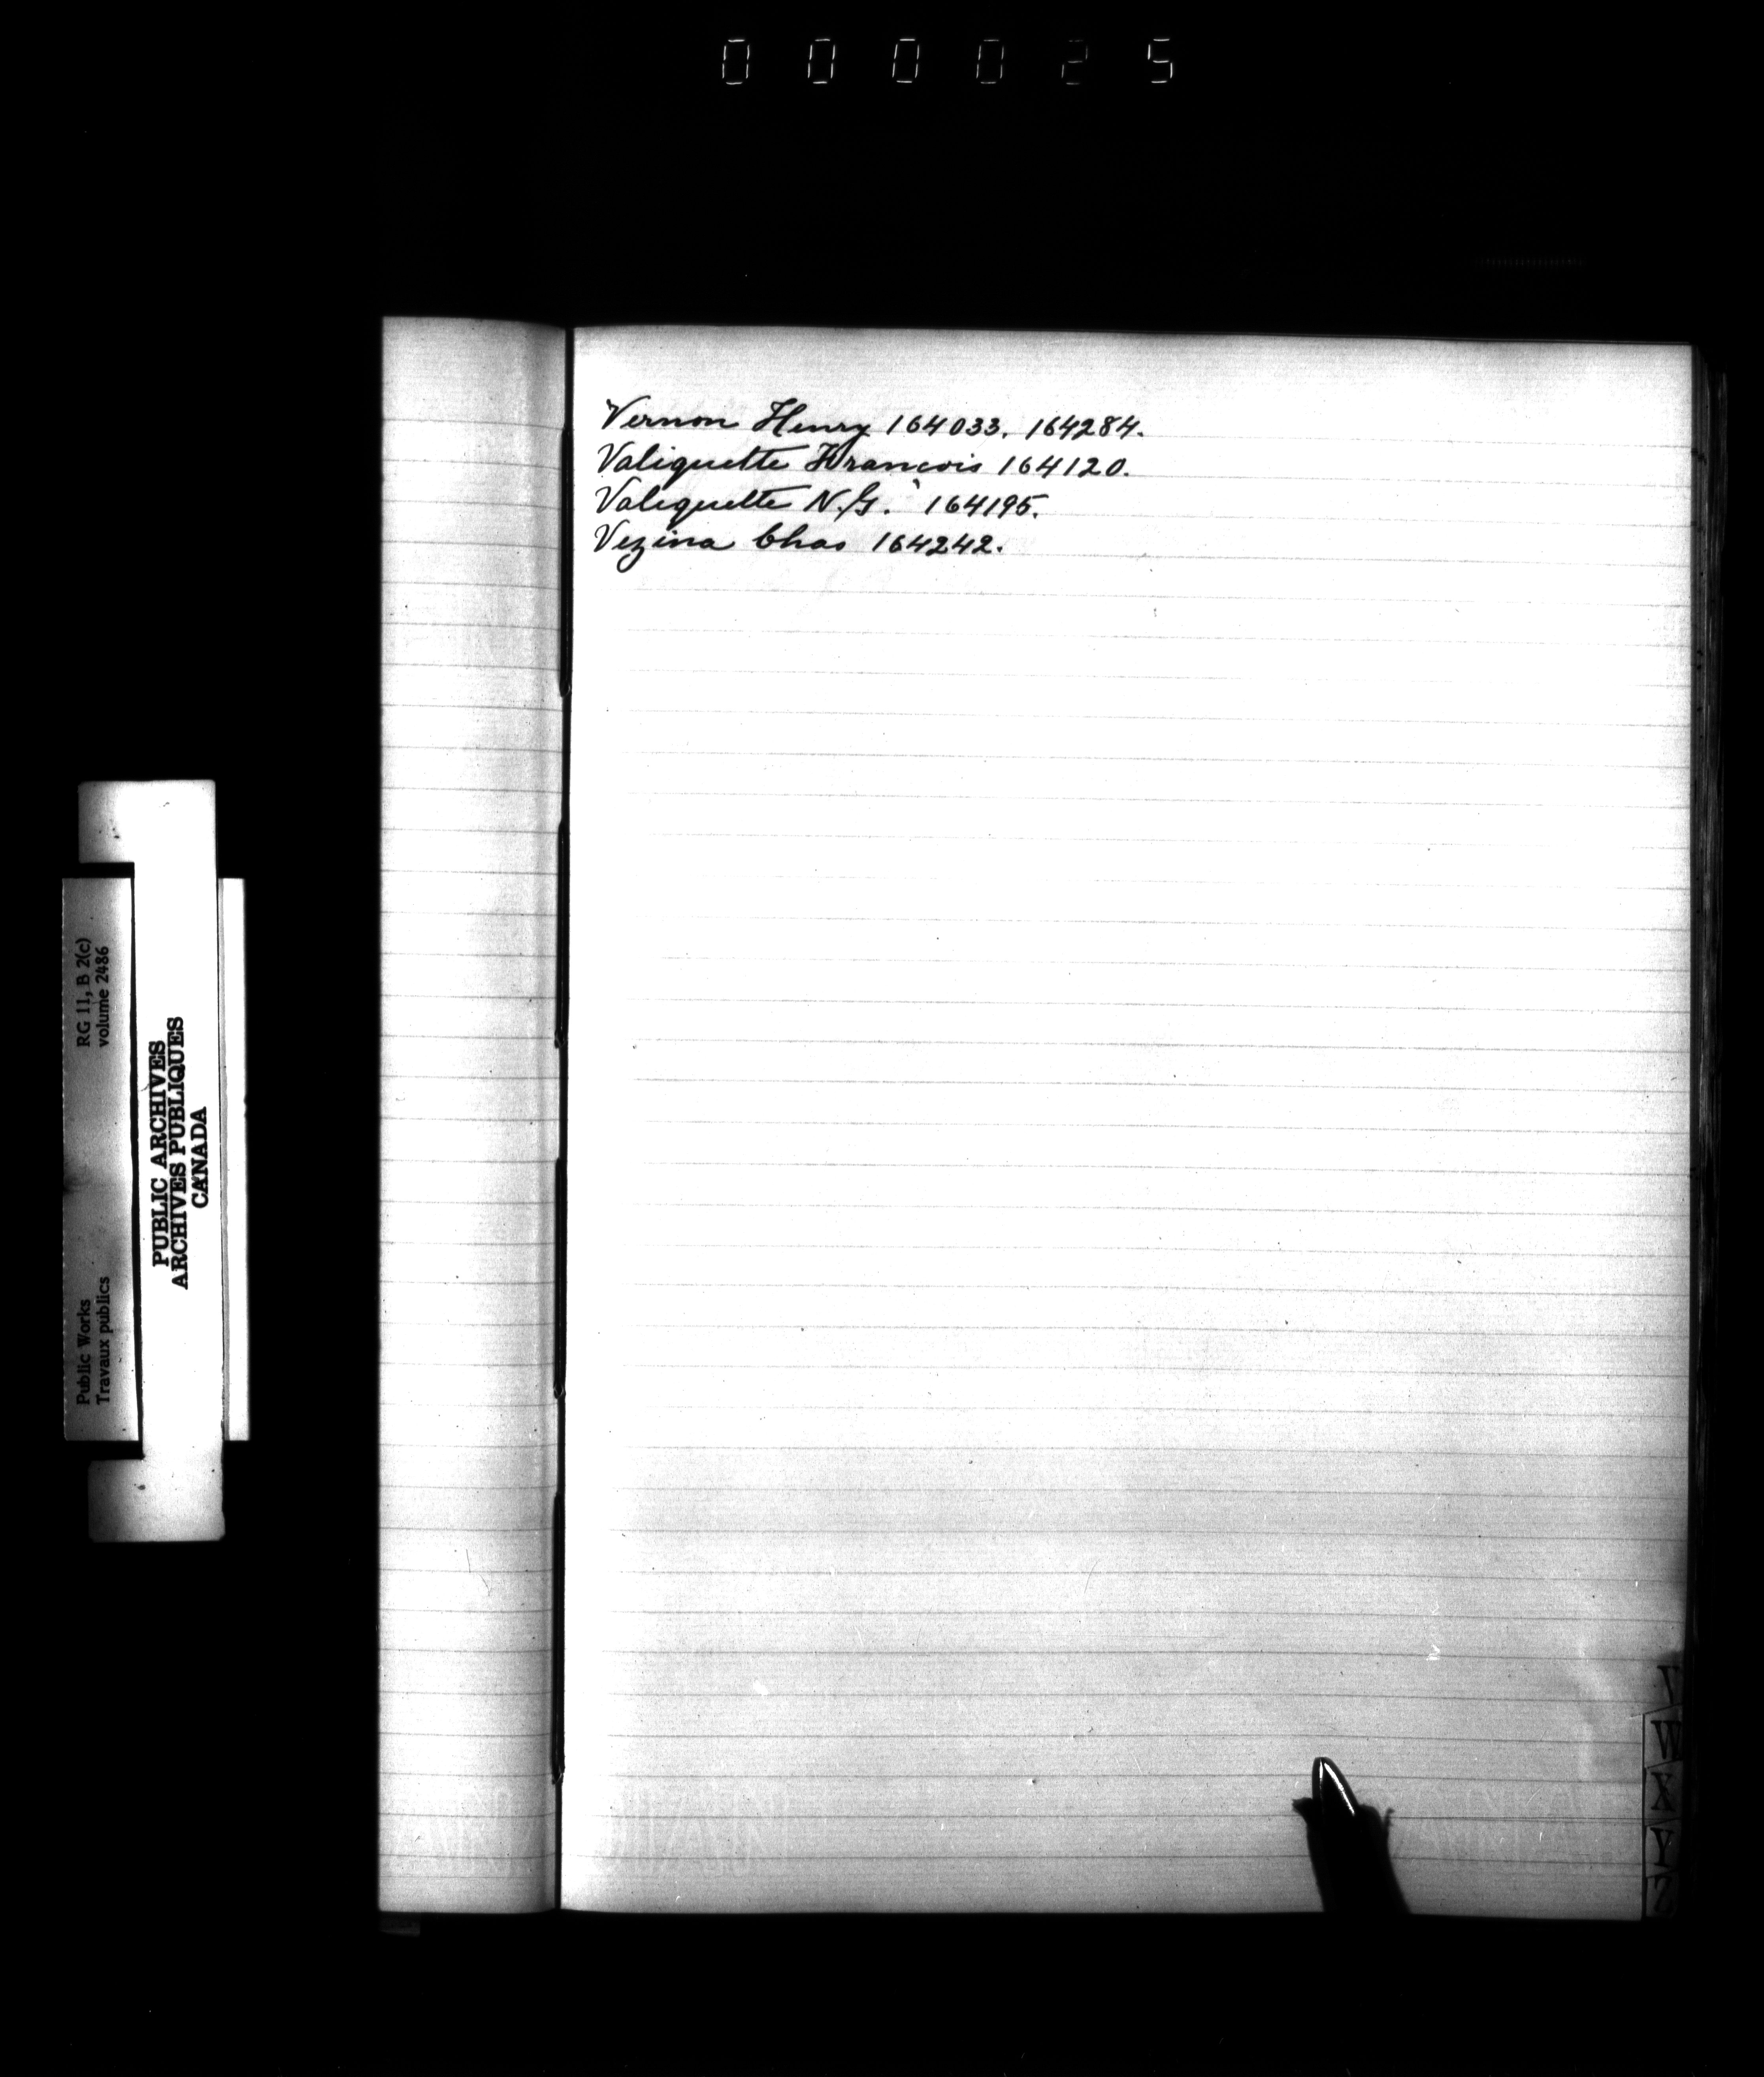 000025
Vernon Henry 164033. 164284.
Valiquette François 164120.
Valiquette N.G. 164195.
Vezina Chas 164242.
RG 11, B 2(c)
volume 2486
Public Works
Travaux publics
PUBLIC ARCHIVES
ARCHIVES PUBLIQUES
CANADA
V
W
X
Y
Z